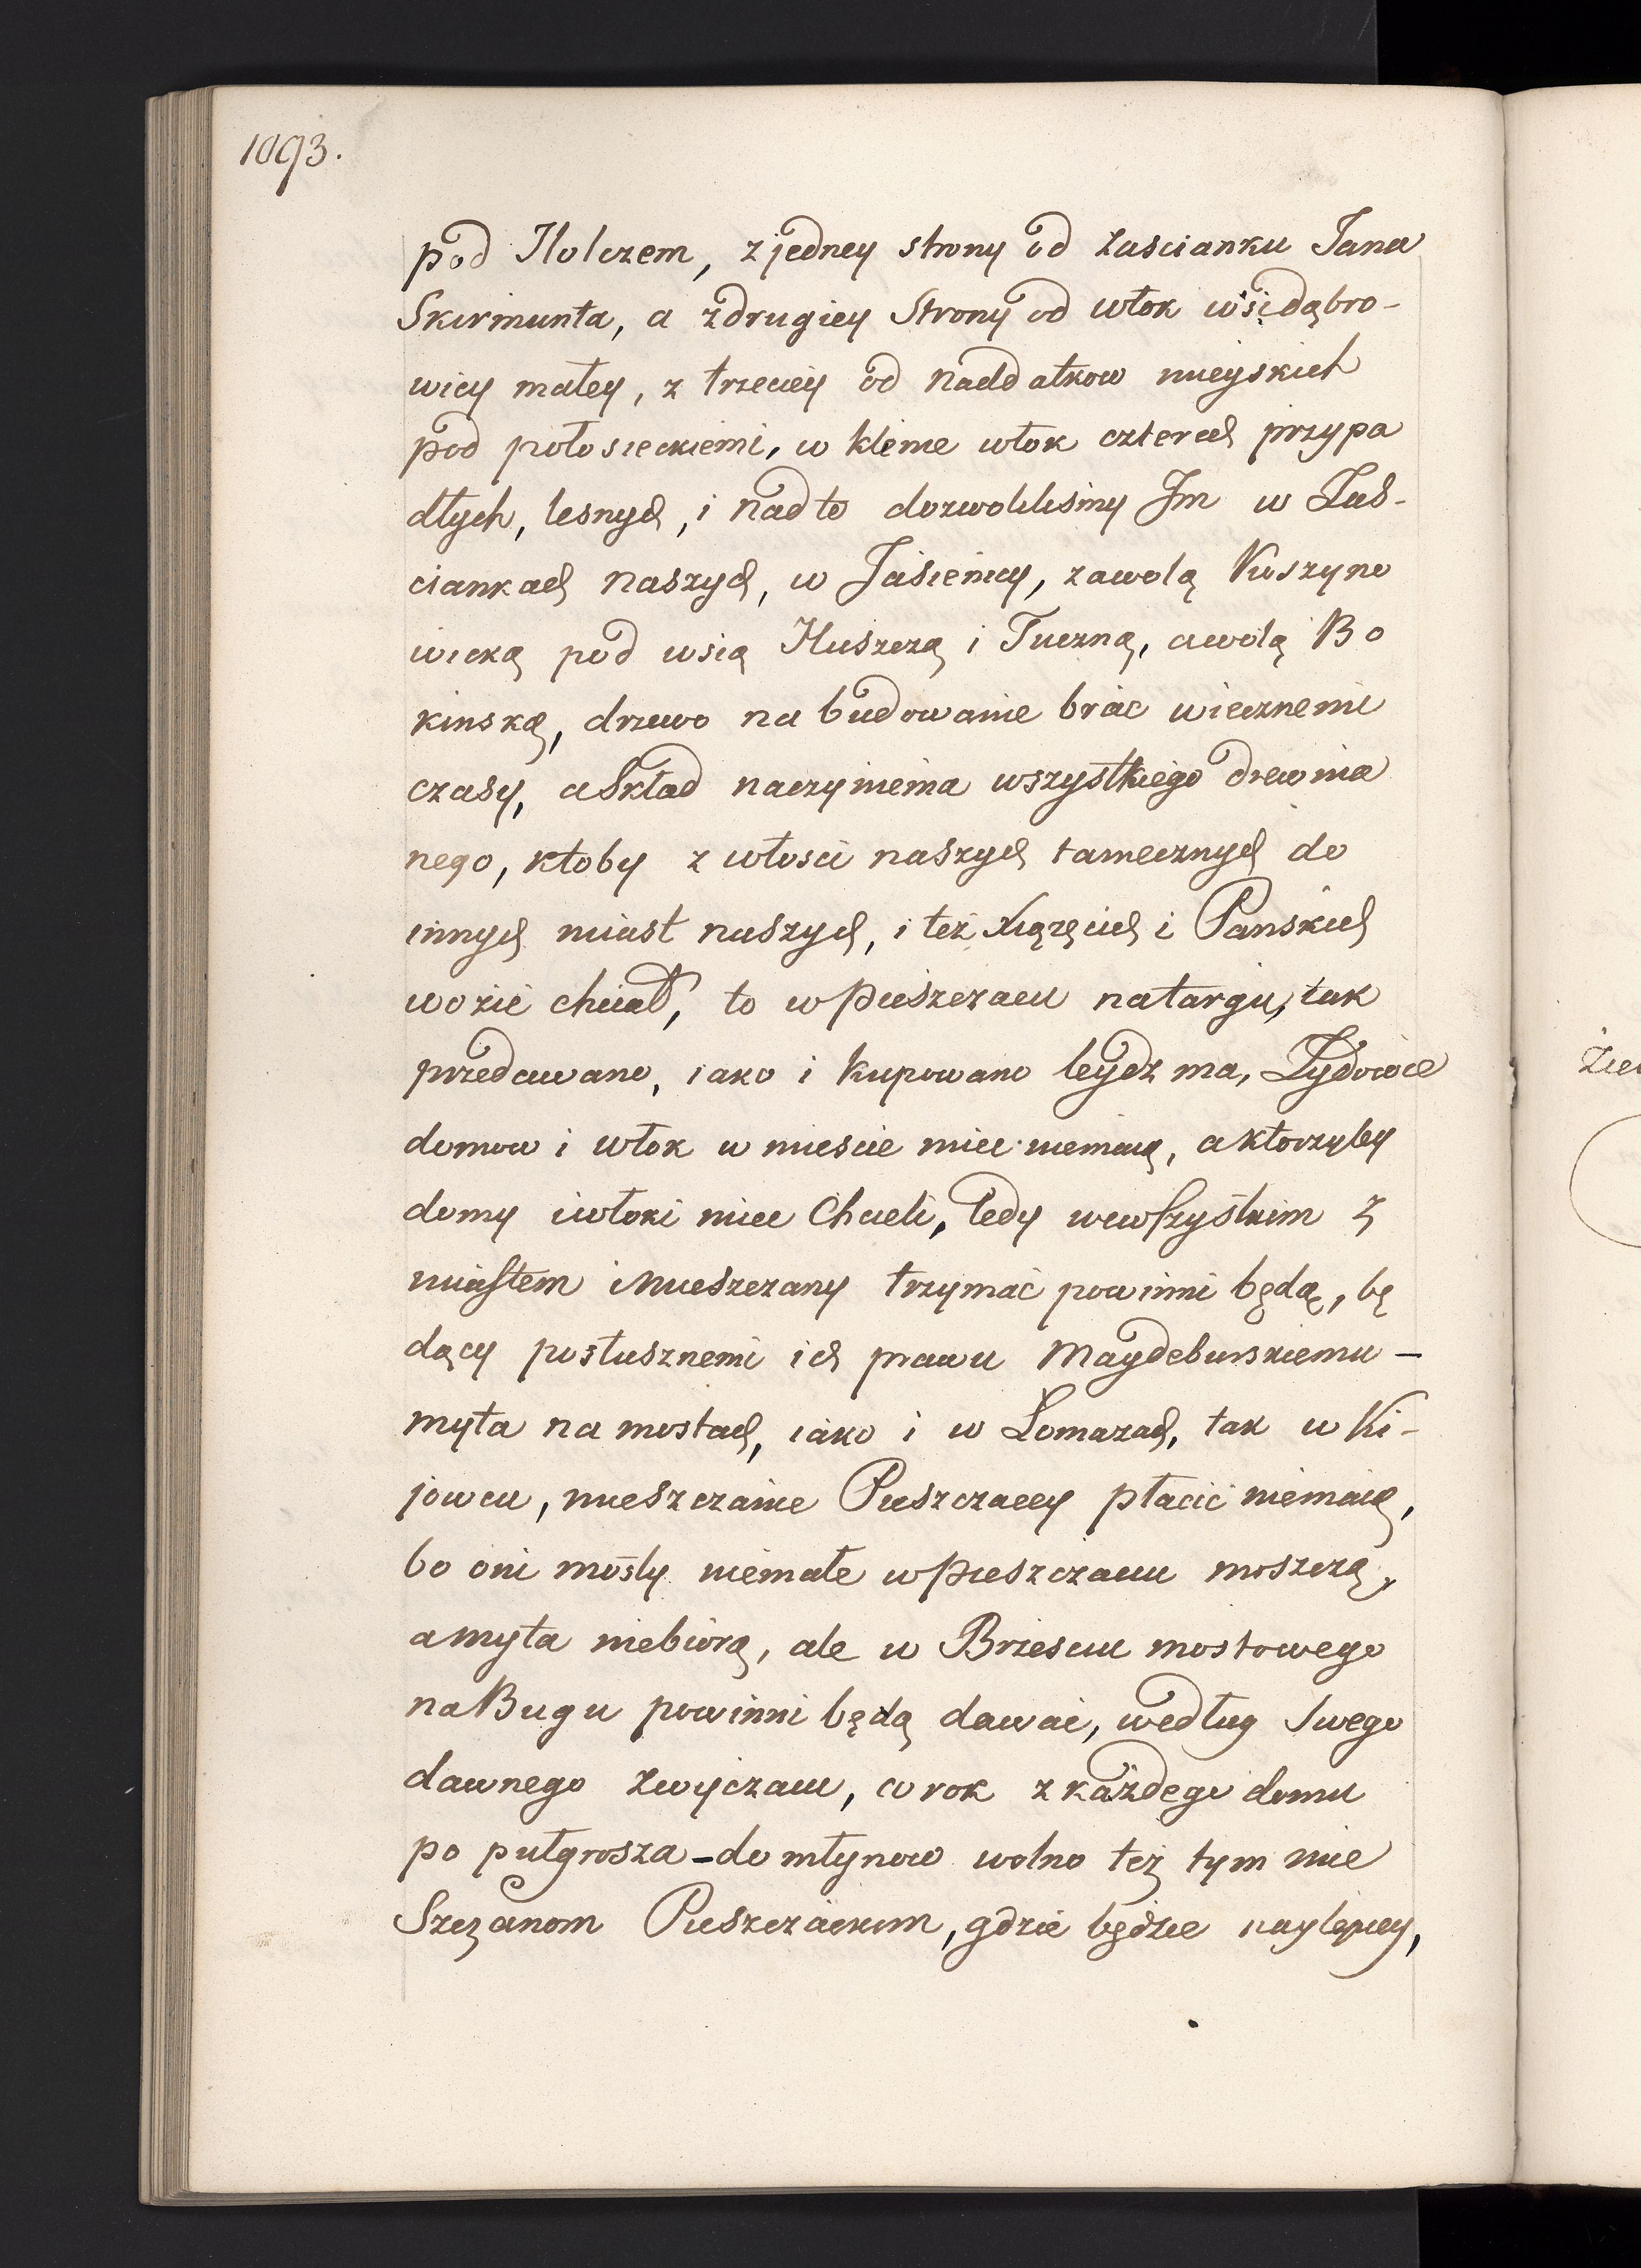 1093.
pod Ilolczem, z jedney strony od zascianku Jana
Skirmunta, a zdrugiey Strony od włok wsi dąbro-
wicy małey, z trzeciey od naddatkow mieyskich
pod połosieckiemi, w klinie włok czterech przypa
dłych, lesnych, i nadto dozwolilismy Im w Zas-
ciankach naszych, w Jasienicy, zawolą Koszyno
wicką pod wsią Huszczą i Tuczną, awolą Bo
kinską, drzewo na budowanie brac wiecznemi
czasy, askład naczynienia wszystkiego drewnia
nego, ktoby z włosci naszych tamecznych do
innych miast naszych, i też xiążęcich i Panskich
wozic chciał, to w Puszczacu natargu, tak
przedawano, iako i kupowano beydz ma, Zydowie
domow i włok w miescie miec niemaią, aktorzyby
domy iwłoki miec Chcieli, tedy wewszystkim z
miastem imieszczany trzymać powinni będą, bę
dący posłusznemi ich prawu Maydeburskiemu –
myta na mostach, iako i w Łomazach, tak w Ki-
jowcu, mieszczanie Puszczaccy płacic niemaią,
bo oni mosty niemałe w Puszczacu moszczą,
amyta niebiorą, ale w Brzesciu mostowego
na Bugu powinni będą dawac, według Swego
dawnego zwyczaiu, w rok z każdego domu
po pułgrosza – do młynow wolno też tym mie
Szczanom Puszczackim, gdzie będzie naylepiey,